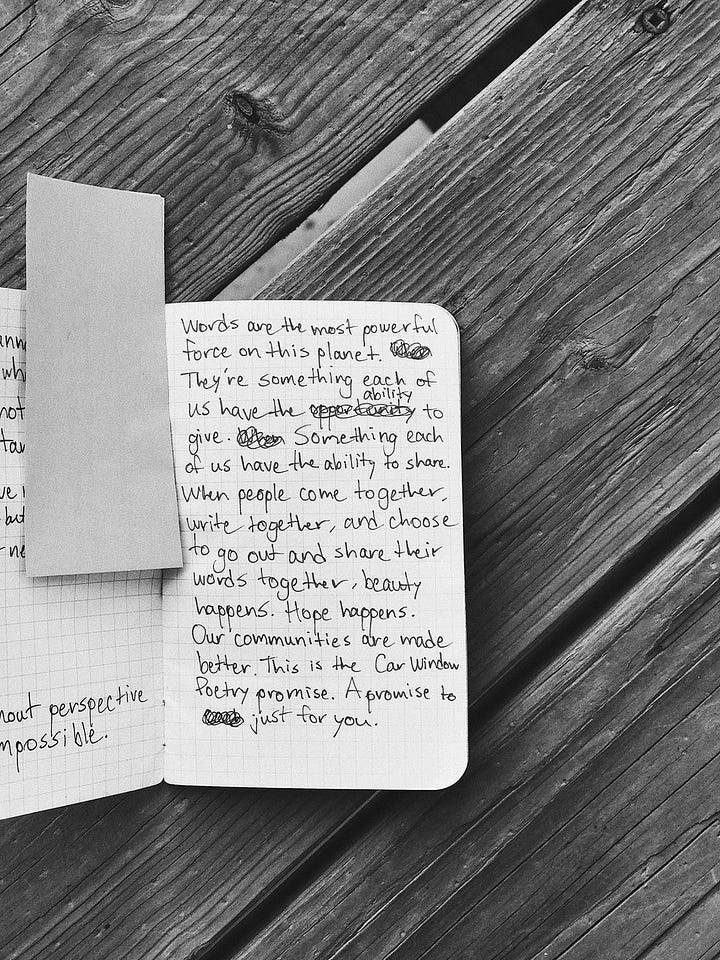 not
but
hout perspective
mpossible.
Words are the most powerful
force on this planet.
They're something each of
us have the opportunity ability to
give. Something each
of us have the ability to share.
When people come together,
write together, and choose
to go out and share their
words together, beauty
happens. Hope happens.
Our communities are made
better. This is the Car Window
Poetry promise. A promise to
just for you.